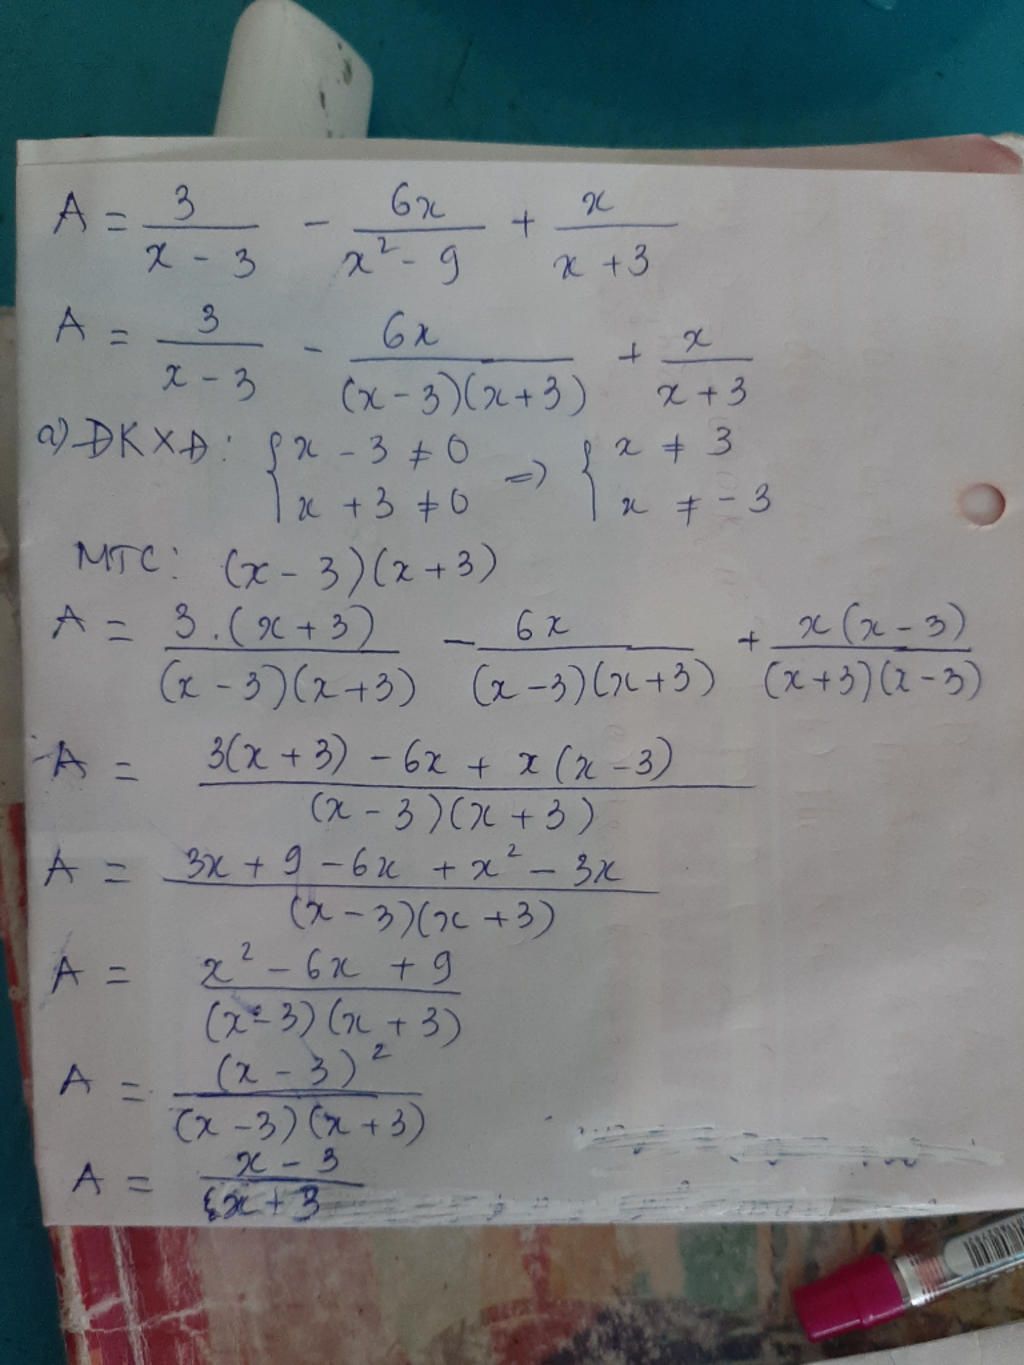 A = 3/(x - 3) - 6x/(x² - 9) + x/(x + 3)
A = 3/(x - 3) - 6x/((x - 3)(x + 3)) + x/(x + 3)
a) ĐKXĐ: { x - 3 ≠ 0 ; x + 3 ≠ 0 => { x ≠ 3 ; x ≠ - 3
MTC: (x - 3)(x + 3)
A = 3.(x + 3)/((x - 3)(x + 3)) - 6x/((x - 3)(x + 3)) + x(x - 3)/((x + 3)(x - 3))
A = (3(x + 3) - 6x + x(x - 3))/((x - 3)(x + 3))
A = (3x + 9 - 6x + x² - 3x)/((x - 3)(x + 3))
A = (x² - 6x + 9)/((x - 3)(x + 3))
A = (x - 3)²/((x - 3)(x + 3))
A = (x - 3)/(x + 3)